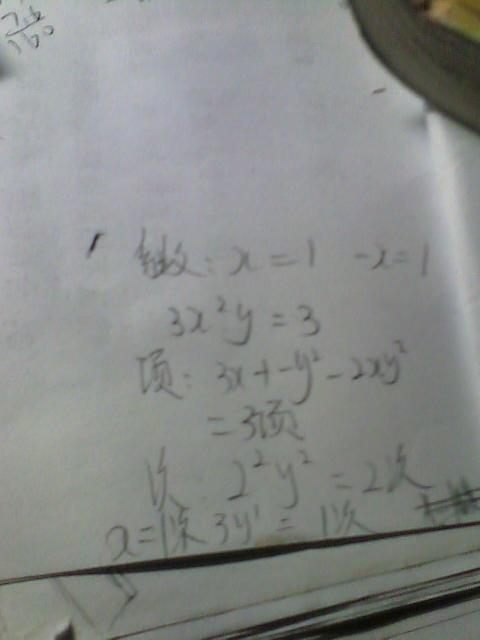 系数: x = 1 -x = 1
3x²y = 3
项: 3x + -y² - 2xy²
= 3项
次: 2²y² = 2次
x = 1次 3y¹ = 1次